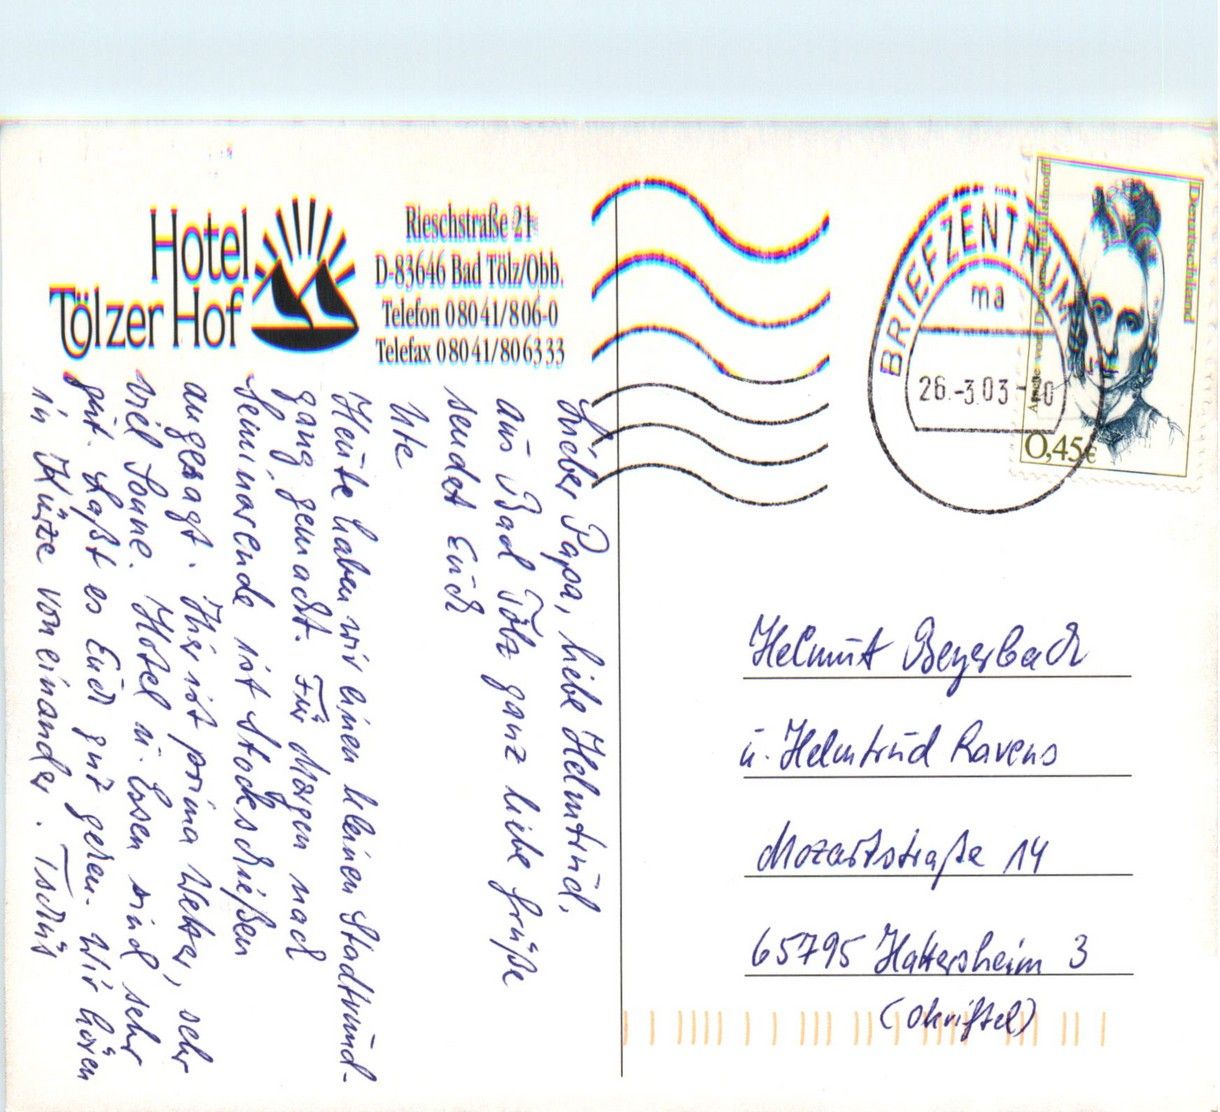 Hotel
Tölzer Hof
Rieschstraße 21
D-83646 Bad Tölz/Obb.
Telefon 08041/806-0
Telefax 08041/806333
Lieber Papa, liebe Helmtrud,
aus Bad Tölz ganz liebe Grüße
sendet Euch
Ute
Heute haben wir einen kleinen Stadtrund-
gang gemacht. Für Morgen nach
Seminarende ist Stockschießen
angesagt. Hier ist prima Wetter, sehr
viel Sonne. Hotel u. Essen sind sehr
gut. Laßt es Euch gut gehen. Wir hören
in Kürze voneinander. Tschüs
BRIEFZENTRUM
ma
26.-3.03-20
Deutschland
Annette von Droste-Hülshoff
0,45€
Helmut Beyerbach
u. Helmtrud Ravens
Mozartstraße 14
65795 Hattersheim 3
(Okriftel)